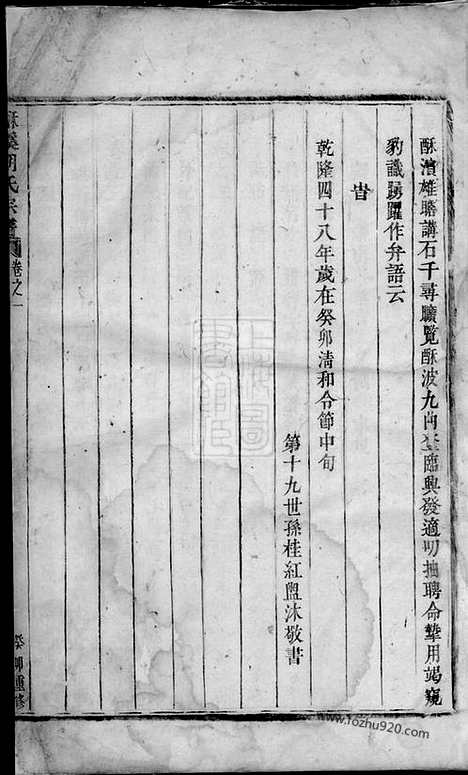 酥濱雄勝講石千尋曠覧酥波九曲登臨興發適叨抽聘命摯用竭窺
豹識踴躍作弁語云
旹
乾隆四十八年歲在癸卯清和令節中旬
第十九世孫桂紅盥沐敬書
酥溪胡氏宗譜
卷之一
癸卯重修
www.fozhu920.com